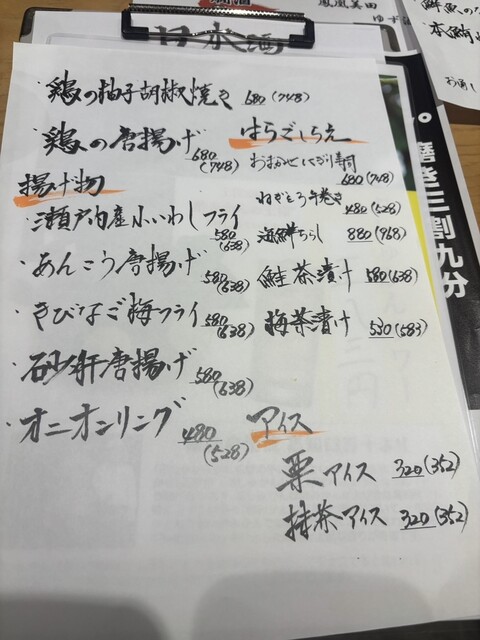 日本酒
・鶏の柚子胡椒焼き 680(748)
・鶏の唐揚げ 680(748)
揚げ物
・瀬戸内産小いわしフライ 580(638)
・あんこう唐揚げ 580(638)
・きびなご梅フライ 580(638)
・砂肝唐揚げ 580(638)
・オニオンリング 480(528)
はらごしらえ
おまかせにぎり寿司 680(748)
ねぎとろ手巻き 480(528)
海鮮ちらし 880(968)
鮭茶漬け 580(638)
梅茶漬け 530(583)
アイス
栗アイス 320(352)
抹茶アイス 320(352)
磨き三割九分
鳳凰美田
ゆず酒